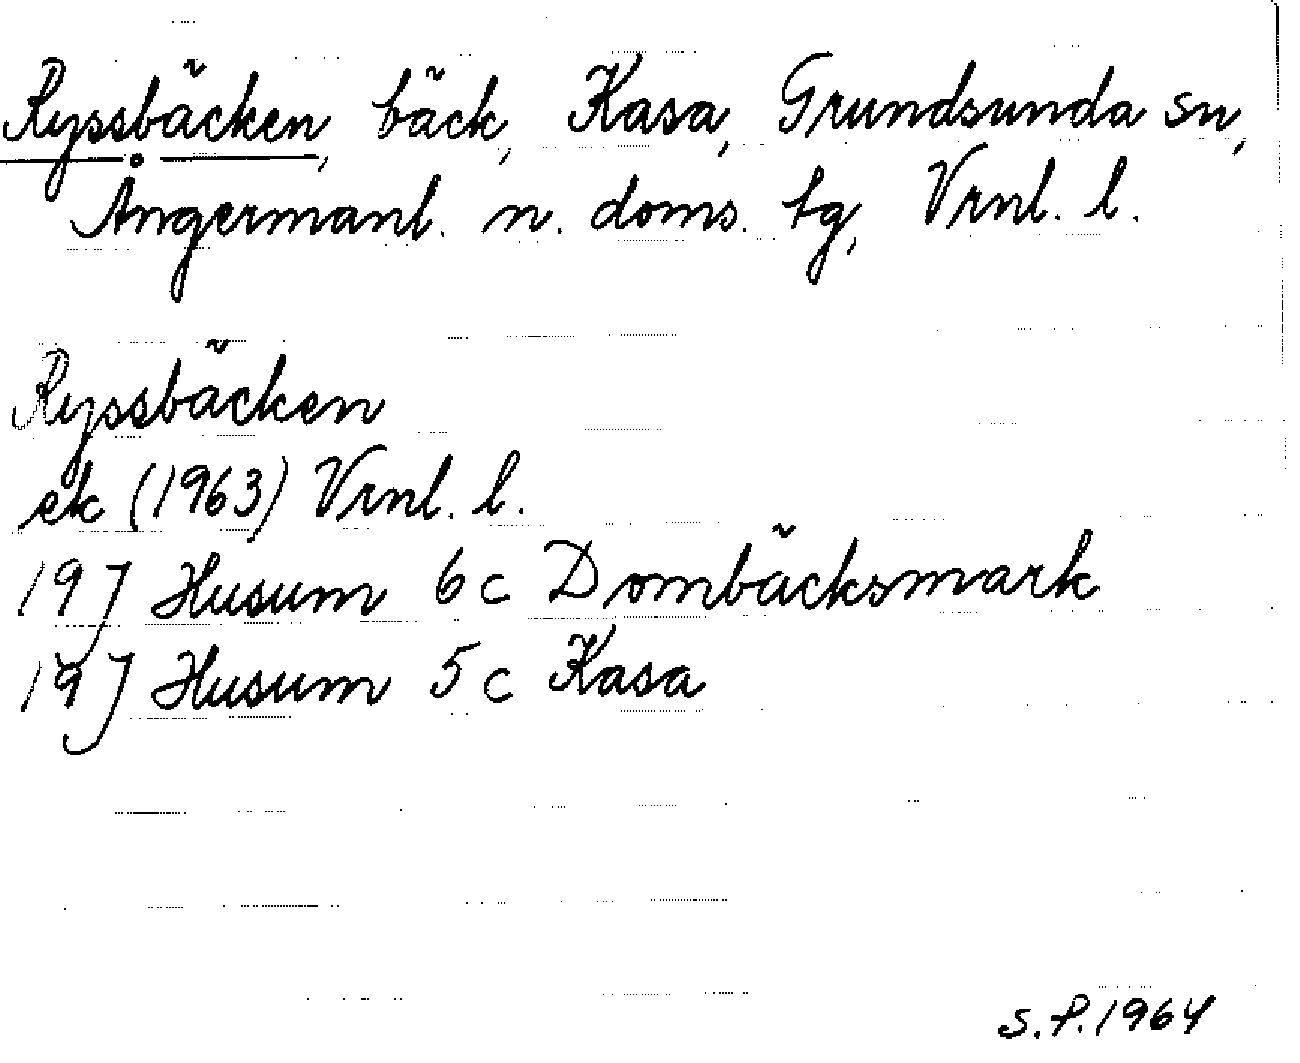 Ryssbäcken, bäck, Kasa, Grundsunda sn,
Ångermanl. n. doms. tg, Vrnl. l.
Ryssbäcken
ek (1963) Vrnl. l.
19 J Husum 6c Dombäcksmark
19 J Husum 5c Kasa
S.P. 1964